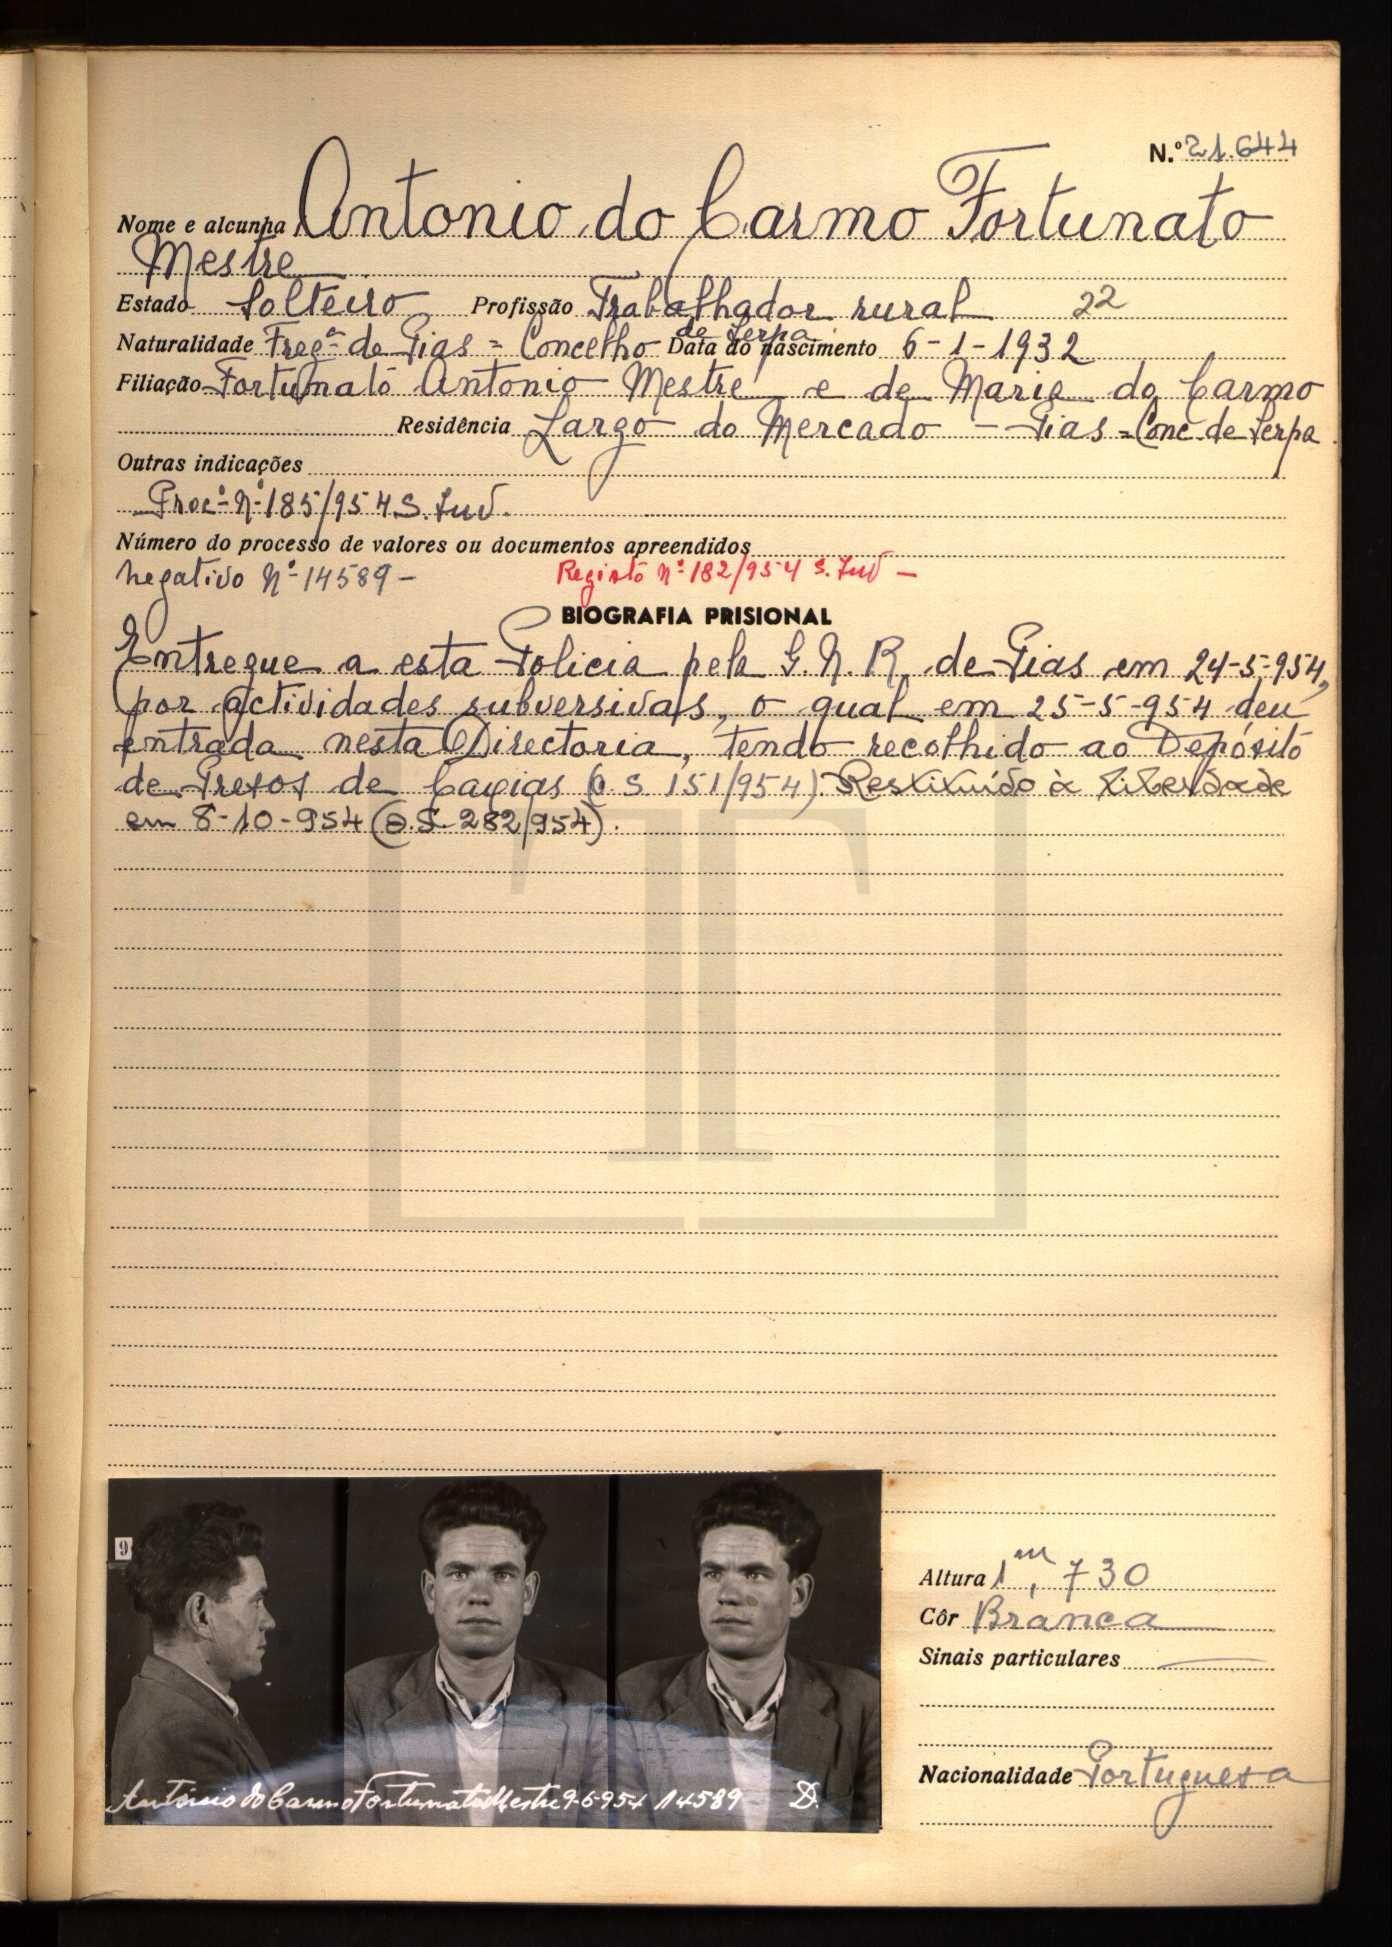 N.º 21.644
Nome e alcunha Antonio do Carmo Fortunato
Mestre
Estado Solteiro Profissão Trabalhador rural 22
Naturalidade Fregª de Pias = Concelho de Serpa Data do nascimento 6-1-1932
Filiação Fortunato Antonio Mestre e de Maria do Carmo
Residência Largo do Mercado - Pias = Conc. de Serpa.
Outras indicações
Procº Nº 185/954 S. Ind.
Número do processo de valores ou documentos apreendidos
Negativo Nº 14589 - Registo Nº 182/954 S. Ind -
BIOGRAFIA PRISIONAL
Entregue a esta Policia pela G. N. R. de Pias em 24-5-954,
por actividades subversivas, o qual em 25-5-954 deu
entrada nesta Directoria, tendo recolhido ao Depósito
de Presos de Caxias (O S 151/954) Restituído à liberdade
em 8-10-954 (O.S. 282/954).
9
António do Carmo Fortunato Mestre 9-6-954 14589 D.
Altura 1m,730
Côr Branca
Sinais particulares
Nacionalidade Portuguesa